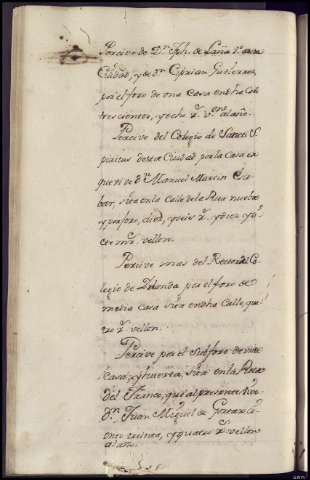 Percive de Dn. Jph. de Laña Vº. de esta
Ciudad, y de Dn. Ciprian Gutierrez,
por el foro de una Casa en dha Ca
trescientos, y ocho rs. vn. al año.
Percive del Colegio de Sancti S
piritus de esta Ciudad por la Casa en
que vive Dn. Manuel Martin Esco
bar, sita en la Calle de la Rua nueba
y por foro, diez, y seis rs. y diez y
mrs. vellon.
Percive mas del Rector del Co
legio de Irlanda por el foro de
media casa sita en dha Calle, qua
tro rs. vellon.
Percive por el subforo de una
casa, y huerta, sita en la Rua
del Franco, que al presente vive
Dn. Juan Miguel de
treinta, y quatro rs. vellon
al año.